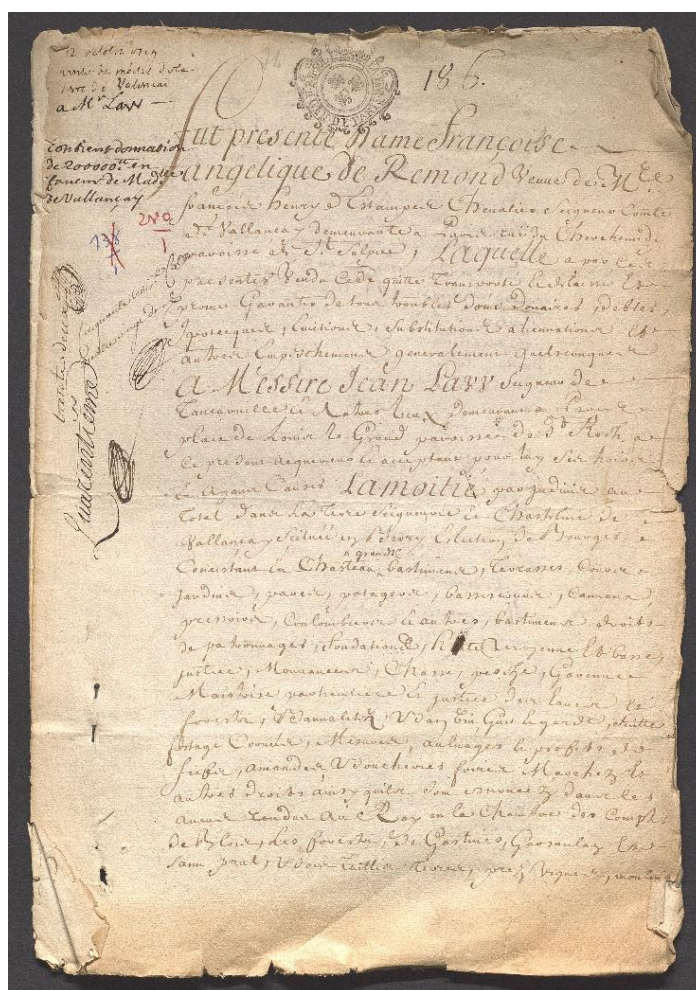 12 octobre 1719
vente de moitié de la
terre de Valencai
a Mr. Law
186.
Contient donnation
de 200000lt. en
faueur de Madlle
de Vallançay
2no
1
fut presente Dame françoise
angelique de Remond Veuue de Mre
françois henry d'Estampes Cheualier Seigneur Comte
de Vallançay demeurante a Paris rüe du Cherchemidi
paroisse de St. Sulpice, Laquelle a par ces
presentes Vendu Cedé quitté Transporté Et delaissé Et
promet Garantir de tous troubles dons douaires, debtes,
Ipotecques, Euictions, Substitutions alienations Et
autres Empeschemens generalement quelconques
A Messire Jean Law Seigneur de
Tancaruille Et Autres Lieux demeurant a Paris
place de Louis le Grand paroisse de St. Roch a
ce present acquereur Et acceptant pour luy Ses hoirs
Et ayans Causes Lamoitié par Indivis au
Total dans La Terre Seigneurie Et Chastelnie de
Vallançay Scituée en Berry Election de Bourges,
Concistant en Chasteau a grands bastimens, terrasses, Cour
Jardins, parcs, potagers, bassecour, Canneaux,
pressoir, Coulombier Et autres, bastimens droits
de patronnages, fondations, haute moyenne Et basse
justice, Mouuances, Chasse, pesche, Garenne
Maistrise particuliere Et justice des Eaux Et
forests, Bannalitez, Guet Et garde,
peage Courtes, Mesures, aulnages Et profits de
fiefs, amandes foires Marchez Et
autres droits ainsy qu'ils Sont Enoncez dans les
aueux rendus Au Roy en la Chambre des Comptes
de Blois, Les forests, de Gastines, Garsenland Et
Saint paul, Bois Taillis terres, prez, Vignes, moulins
Quarentieme